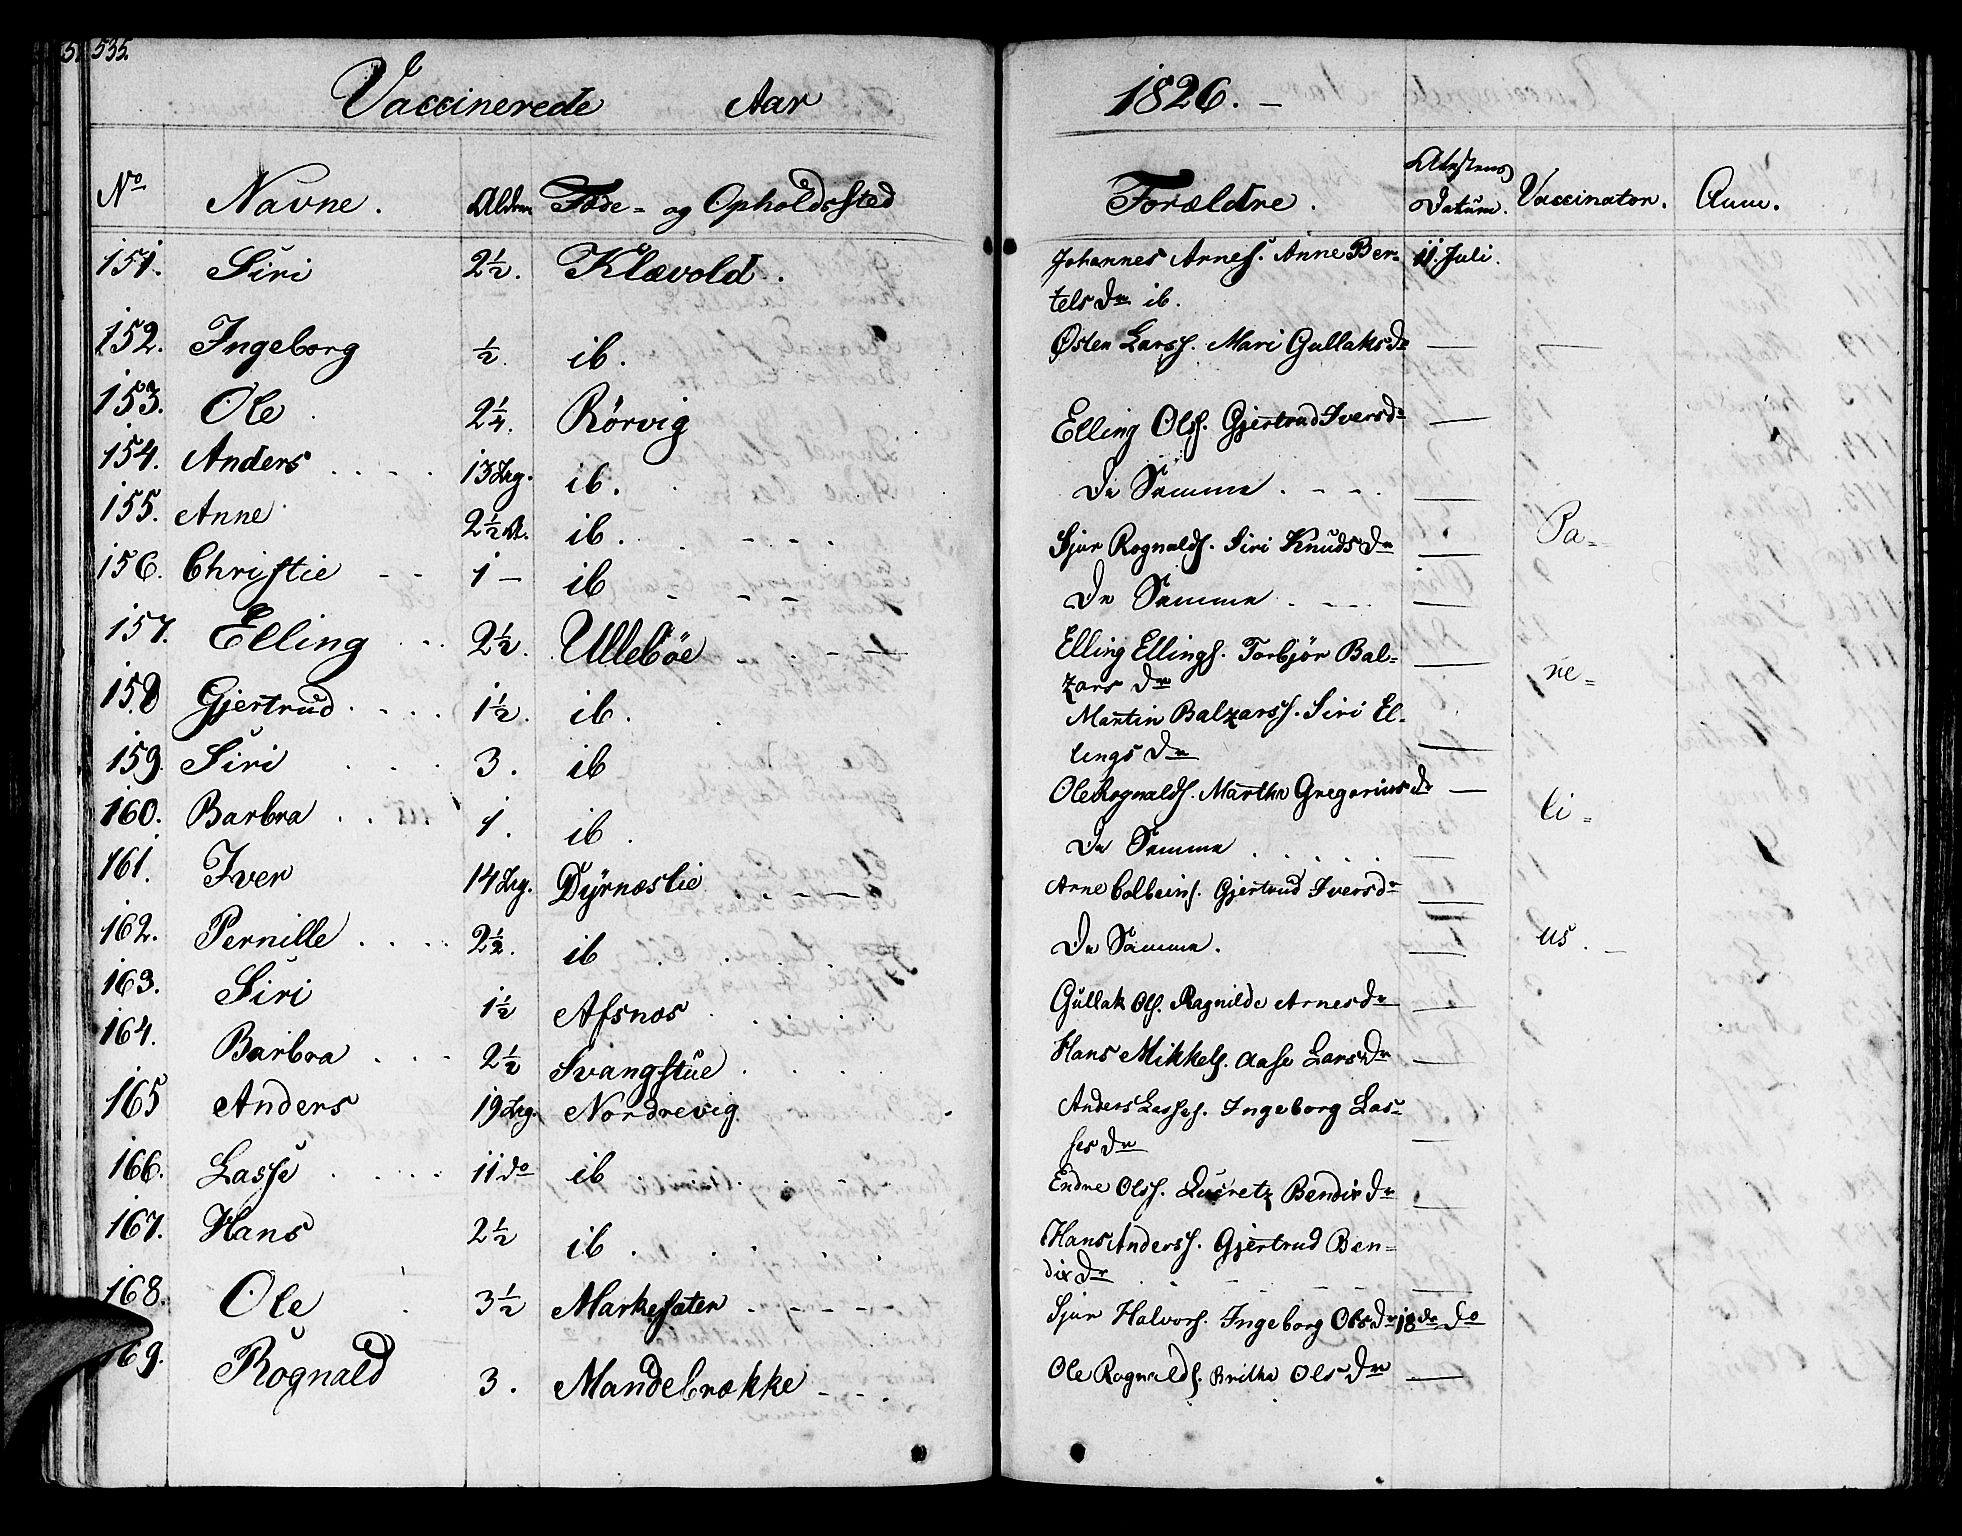 535.
Vaccinerede Aar 1826. –
No Navne. Alder Føde- og Opholdssted Forældre. Attestens Datum. Vaccinator. Anm.
151. Siri 2½. Klævold. Johannes Arnes. Anne Ber- 11. Juli.
tels Dr ib.
152. Ingeborg ½. ib. Østen Larss. Mari Gullaksdr — —
153. Ole 2¼. Rörvig Elling Ols. Gjertrud Iversdr —
154. Anders 13 Urg. ib. De Samme —
155. Anne 2½ A. ib. Sjur Rognalds. Siri Knuds Dr — Pa=
156. Christie 1 – ib De Samme —
157. Elling 2½. Ullebøe Elling Ellings. Torbjør Bal- —
zars Dr ne=
158 Gjertrud 1½. ib. Martin Balzarss. Siri El-
lings Dr —
159. Siri 3. ib Ole Rognalds. Martha Gregorius dr —
160. Barbra 1. ib. De Samme — li=
161. Iver 14 Urg. Dyrnæslie Arne Colbeins. Gjertrud Iversdr —
162. Pernille 2½. ib De Samme. — us. –
163. Siri 1½ Afsnos Gullak Ols. Ragnilde Arnesdr —
164. Barbra 2½ Svangstue Hans Mikkels. Aase Larsdr —
165 Anders 19 Urg. Nordrevig Anders Lasses. Ingeborg Las-
ses dr —
166. Lasse 11 do ib Endre Olss. Lucretz Bendixdr —
167. Hans 2½ ib. Hans Anderss. Gjertrud Ben-
dixdr —
168. Ole 3½ Markesæter Sjur Halvors. Ingeborg Olsdr 18de do
169. Rognald 3. Mandebrække Ole Rognalds. Britha Olsdr —